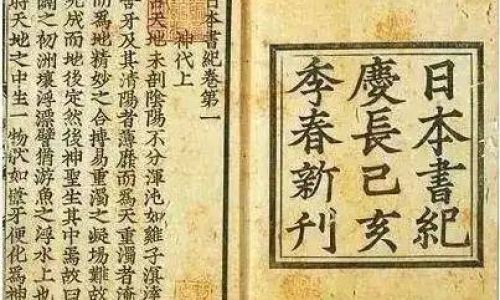 日本書紀
慶長己亥
季春新刊
日本書紀卷第一
神代上
古天地未剖陰陽不分渾沌如雞子溟涬
含牙及其清陽者薄靡而爲天重濁者淹
爲地精妙之合搏易重濁之凝場難故
先成而地後定然後神聖生其中焉故曰
闢之初洲壤浮漂譬猶游魚之浮水上也
時天地之中生一物狀如葦牙便化爲神